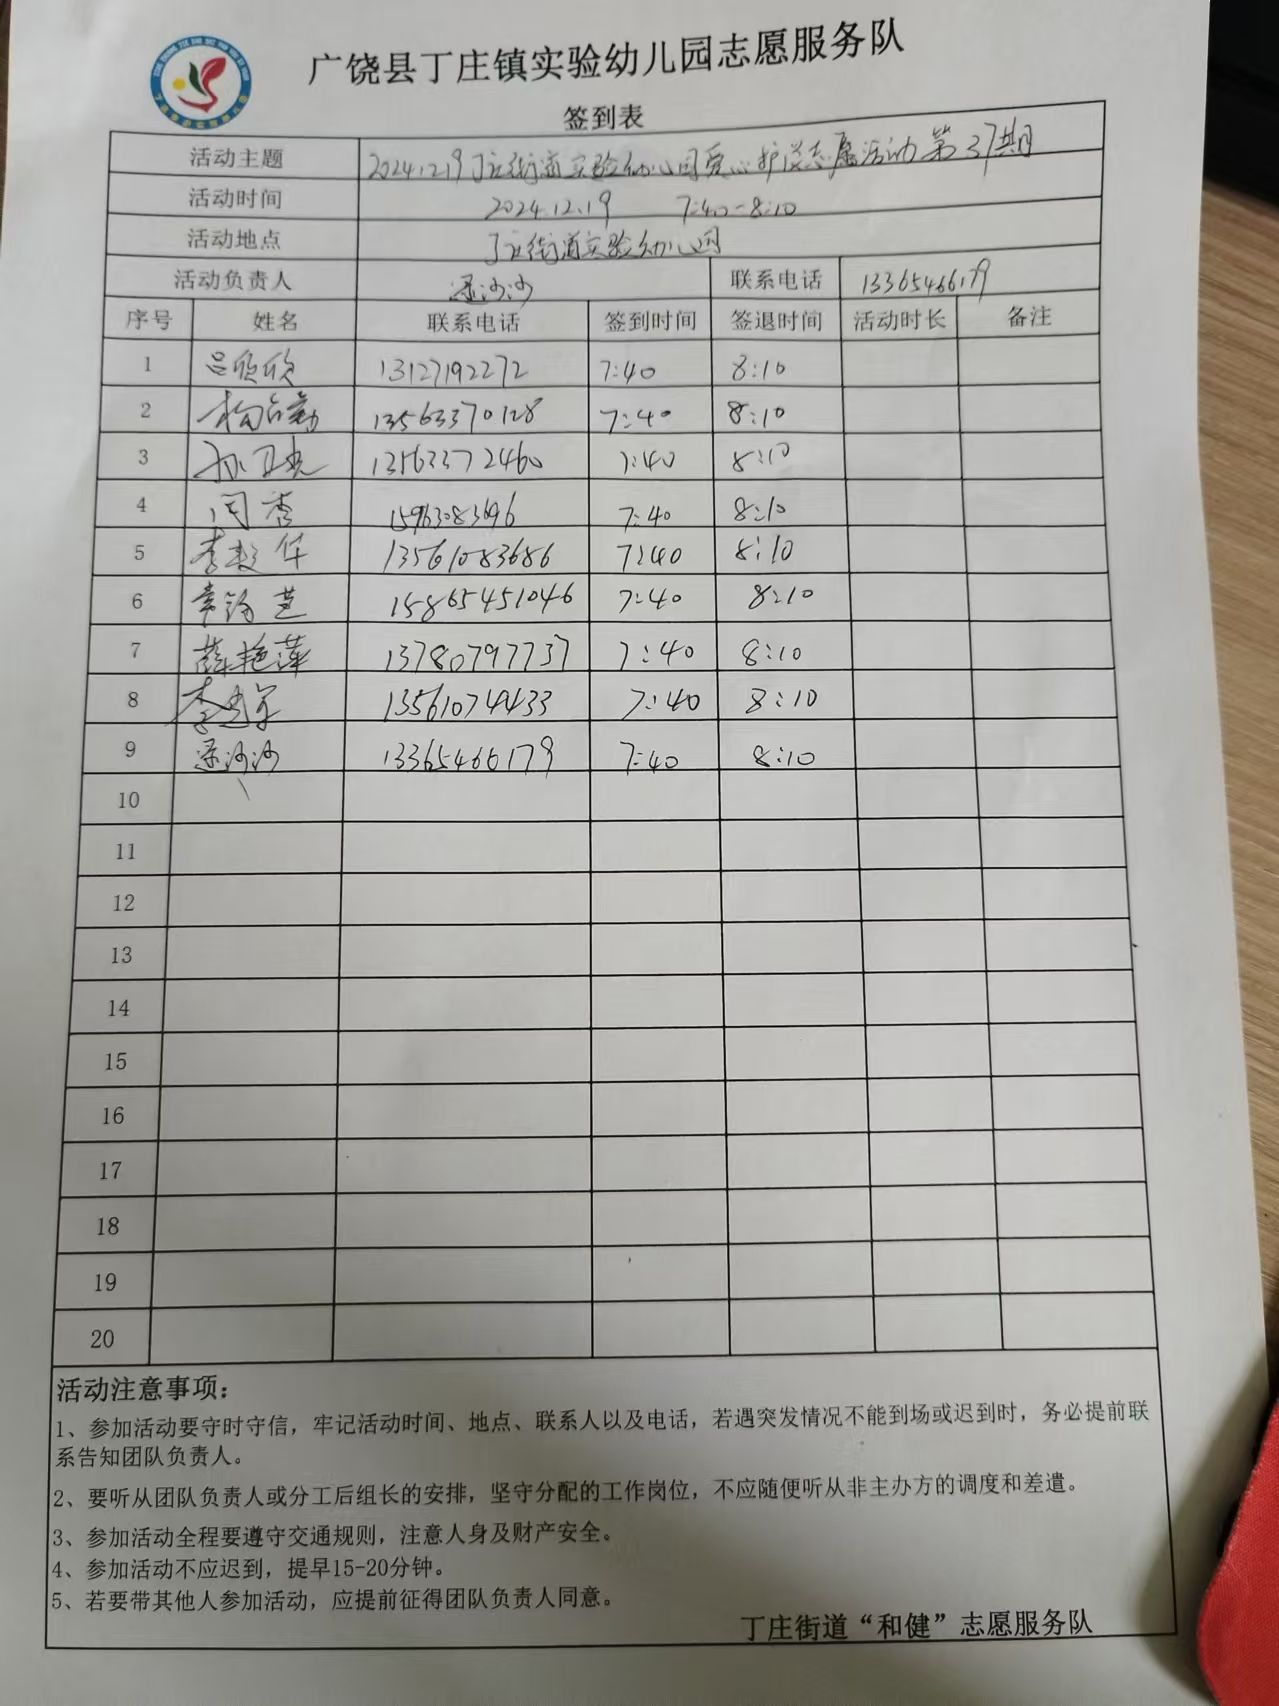 广饶县丁庄镇实验幼儿园志愿服务队
签到表
活动主题 2024.12.19丁庄街道实验幼儿园爱心护学志愿活动第37期
活动时间 2024.12.19 7:40-8:10
活动地点 丁庄街道实验幼儿园
活动负责人 梁沙沙 联系电话 13365466179
序号 姓名 联系电话 签到时间 签退时间 活动时长 备注
1 吕欣欣 13127192272 7:40 8:10
2 13563370128 7:40 8:10
3 13563372460 7:40 8:10
4 闫秀 15963083696 7:40 8:10
5 13561083686 7:40 8:10
6 15865451046 7:40 8:10
7 薛艳萍 13780797737 7:40 8:10
8 13561074433 7:40 8:10
9 梁沙沙 13365466179 7:40 8:10
10
11
12
13
14
15
16
17
18
19
20
活动注意事项：
1、参加活动要守时守信，牢记活动时间、地点、联系人以及电话，若遇突发情况不能到场或迟到时，务必提前联
系告知团队负责人。
2、要听从团队负责人或分工后组长的安排，坚守分配的工作岗位，不应随便听从非主办方的调度和差遣。
3、参加活动全程要遵守交通规则，注意人身及财产安全。
4、参加活动不应迟到，提早15-20分钟。
5、若要带其他人参加活动，应提前征得团队负责人同意。
丁庄街道“和健”志愿服务队